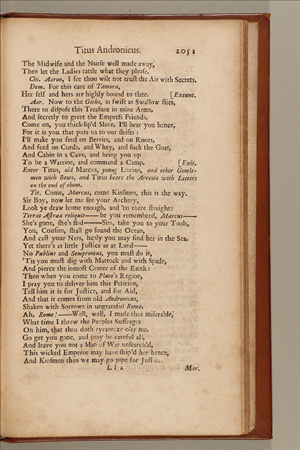 Titus Andronicus. 2051
The Midwife and the Nurse well made away,
Then let the Ladies tattle what they please.
Chi. Aaron, I see thou wilt not trust the Air with Secrets.
Dem. For this care of Tamora,
Her self and hers are highly bound to thee. [Exeunt.
Aar. Now to the Goths, as swift as Swallow flies,
There to dispose this Treasure in mine Arms,
And secretly to greet the Empress Friends.
Come on, you thick-lip'd Slave, I'll bear you hence,
For it is you that puts us to our shifts:
I'll make you feed on Berries, and on Roots,
And feed on Curds, and Whey, and suck the Goat,
And Cabin in a Cave, and bring you up
To be a Warrior, and command a Camp. [Exit.
Enter Titus, old Marcus, young Lucius, and other Gentle-
men with Bows, and Titus bears the Arrows with Letters
on the end of them.
Tit. Come, Marcus, come Kinsmen, this is the way.
Sir Boy, now let me see your Archery,
Look ye draw home enough, and 'tis there straight:
Terras Astræa reliquit——be you remembred, Marcus—
She's gone, she's fled——Sirs, take you to your Tools,
You, Cousins, shall go sound the Ocean,
And cast your Nets, haply you may find her in the Sea,
Yet there's as little Justice as at Land——
No Publius and Sempronius, you must do it,
'Tis you must dig with Mattock and with Spade,
And pierce the inmost Center of the Earth:
Then when you come to Pluto's Region,
I pray you to deliver him this Petition,
Tell him it is for Justice, and for Aid,
And that it comes from old Andronicus,
Shaken with Sorrows in ungrateful Rome.
Ah, Rome!——Well, well, I made thee miserable,
What time I threw the Peoples Suffrages
On him, that thus doth tyrannize o'er me.
Go get you gone, and pray be careful all,
And leave you not a Man of War unsearch'd,
This wicked Emperor may have ship'd her hence,
And Kinsmen then we may go pipe for Justice.
L l 2 Mar.